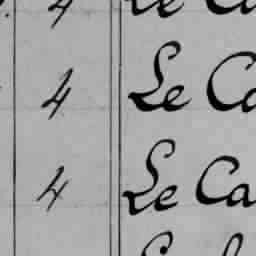 4 Le Ca
4 Le Ca
4 Le Ca